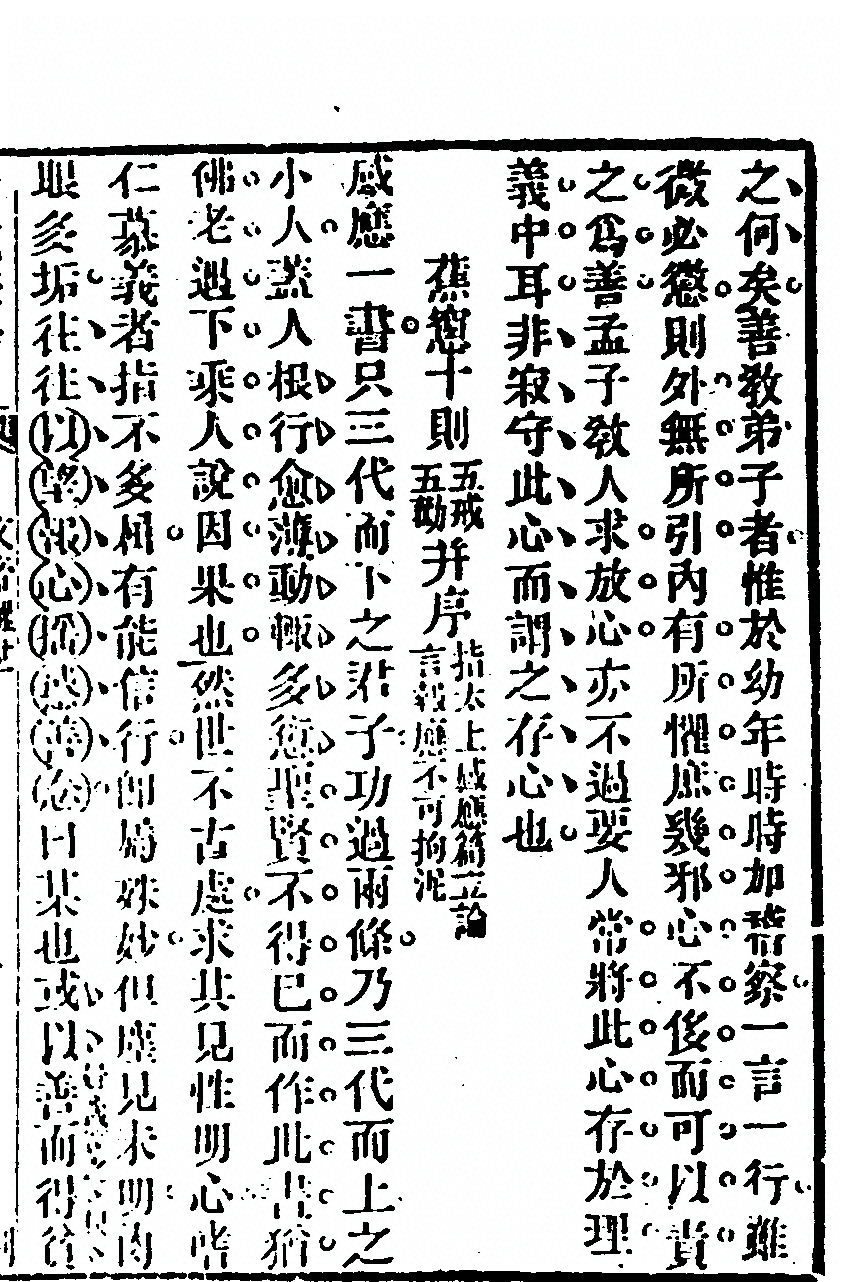 之何矣善教弟子者惟於幼年時時加稽察一言一行雖
微必懲則外無所引內有所懼庶幾邪心不後而可以責
之為善孟子教人求放心亦不過要人常將此心存於理
義中耳非寂守此心而謂之存心也
蕉窗十則五戒五勸并序指太上感應篇立論言報應不可拘泥
感應一書只三代而下之君子功過兩條乃三代而上之
小人蓋人根行愈薄動輒多愆聖賢不得已而作此書猶
佛老過下乘人說因果也然世不古處求其見性明心嗜
仁慕義者指不多相有能信行即屬殊妙但塵見未明肉
眼多垢往往以望報心搖惑善念曰某也或以善而得貧